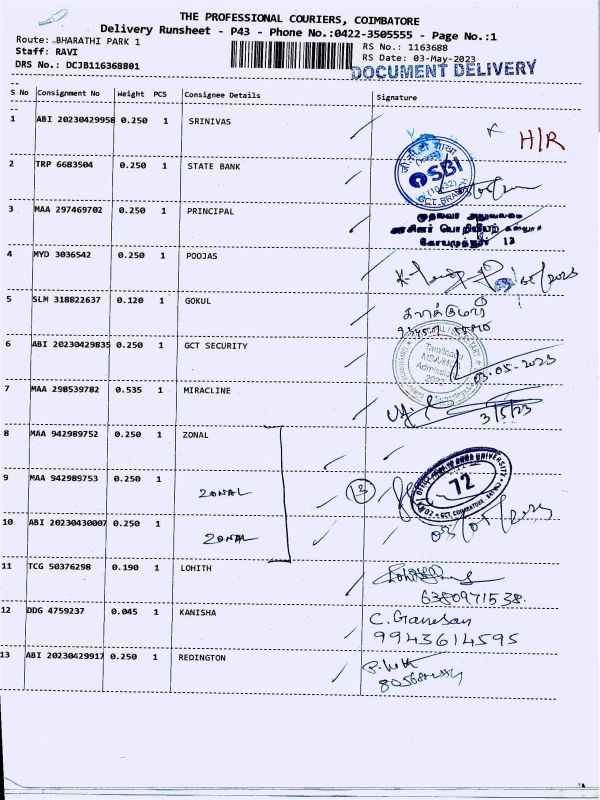 THE PROFESSIONAL COURIERS, COIMBATORE
Delivery Runsheet - P43 - Phone No.:0422-3505555 - Page No.:1
Route: BHARATHI PARK 1 RS No.: 1163688
Staff: RAVI RS Date: 03-May-2023
DRS No.: DCJB116368801 DOCUMENT DELIVERY
S No Consignment No Weight PCS Consignee Details Signature
1 ABI 20230429958 0.250 1 SRINIVAS H/R
2 TRP 6683504 0.250 1 STATE BANK SBI
3 MAA 297469702 0.250 1 PRINCIPAL
முதல்வர் அலுவலகம்
அரசினர் பொறியியற் கல்லூரி
கோயமுத்தூர் 13
4 MYD 3036542 0.250 1 POOJAS
5 SLM 318822637 0.120 1 GOKUL
6 ABI 20230429835 0.250 1 GCT SECURITY
Tamilnadu
Admission
2022
03-05-2023
7 MAA 298539782 0.535 1 MIRACLINE 3/5/23
8 MAA 942989752 0.250 1 ZONAL
9 MAA 942989753 0.250 1 ZONAL 72
10 ABI 20230430007 0.250 1 ZONAL 03/05/2023
11 TCG 50376298 0.190 1 LOHITH
6380971538
12 DDG 4759237 0.045 1 KANISHA C. Ganesan
9943614595
13 ABI 20230429917 0.250 1 REDINGTON